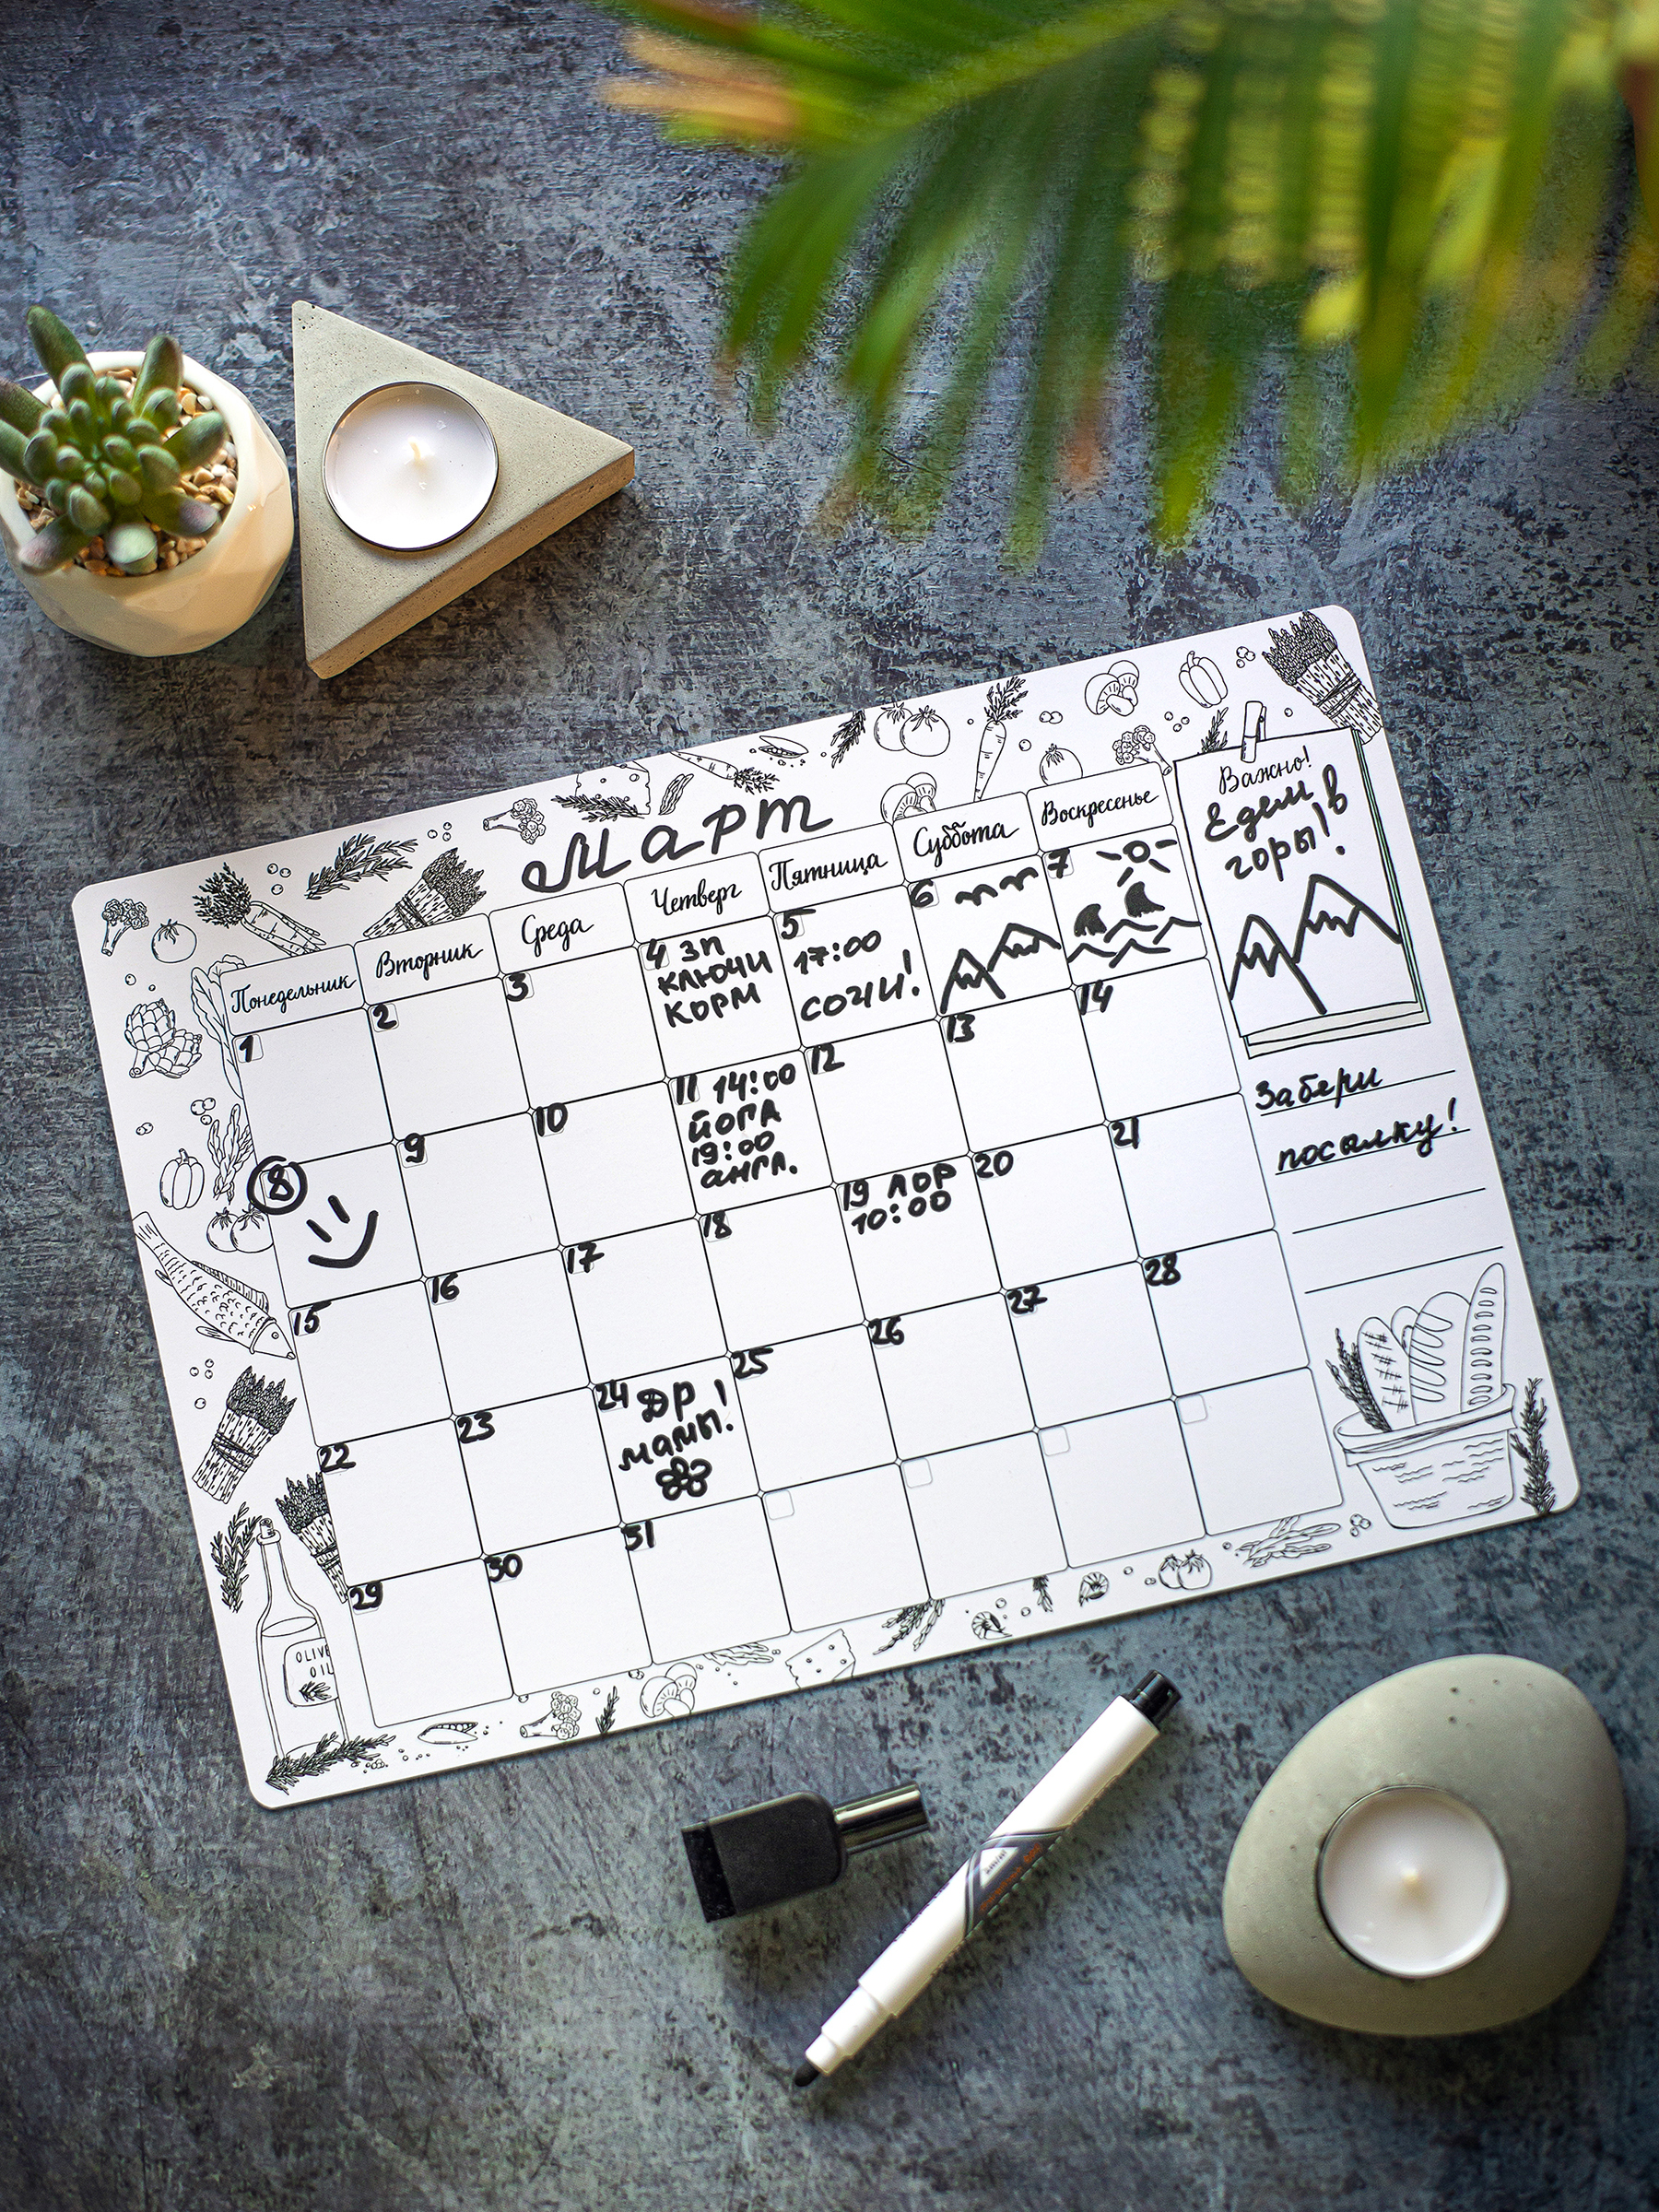 Март
Понедельник Вторник Среда Четверг Пятница Суббота Воскресенье
1 2 3 4 ЗП
КЛЮЧИ
КОРМ
5
17:00
СОЧИ!
6 7
8 9 10 11 14:00
ЙОГА
19:00
АНГЛ.
12 13 14
15 16 17 18 19 ЛОР
10:00
20 21
22 23 24 ДР
мамы!
25 26 27 28
29 30 31
Важно!
Едем в
горы!
Забери
посылку!
OLIVE
OIL